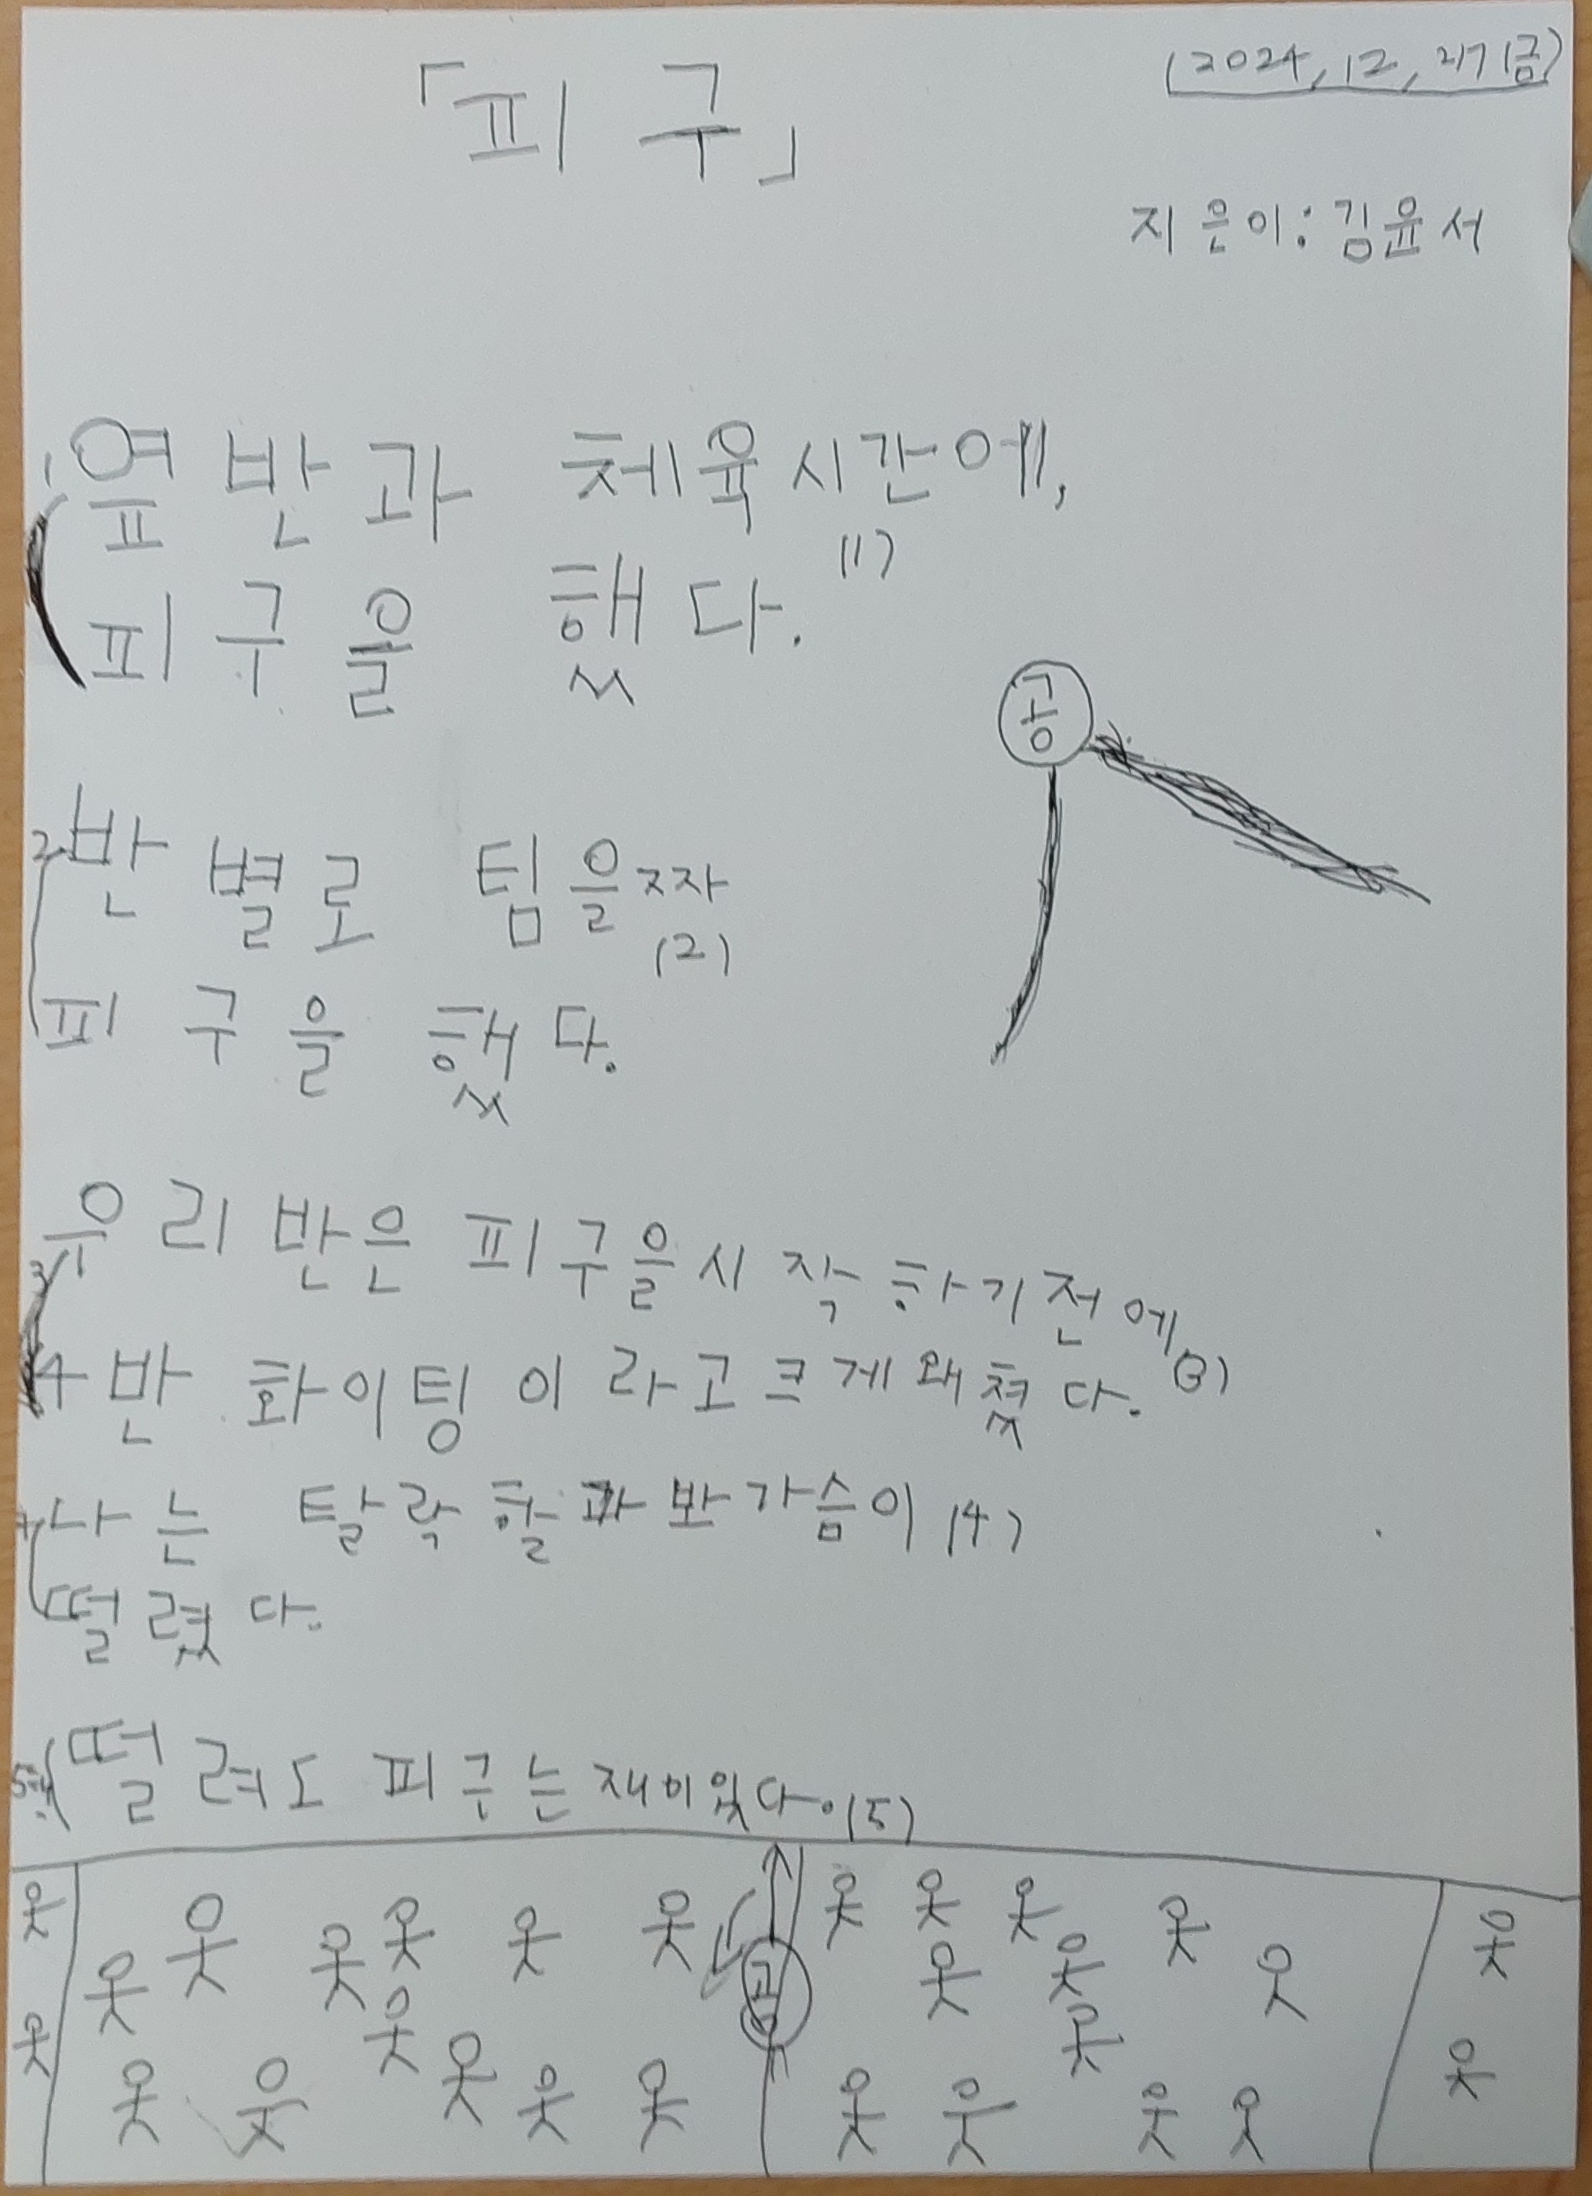 (2024, 12, 27(금)
「피구」
지은이: 김윤서
1 옆반과 체육시간에,
(1)
피구을 했다.
공
2 반별로 팀을짜
(2)
피구을 했다.
우리반은 피구을시작하기전에
3
4반 화이팅이라고크게왜쳤다. (3)
4 나는 탈락할까봐가슴이 (4)
떨렸다.
5 떨려도 피구는재미있다.(5)
공